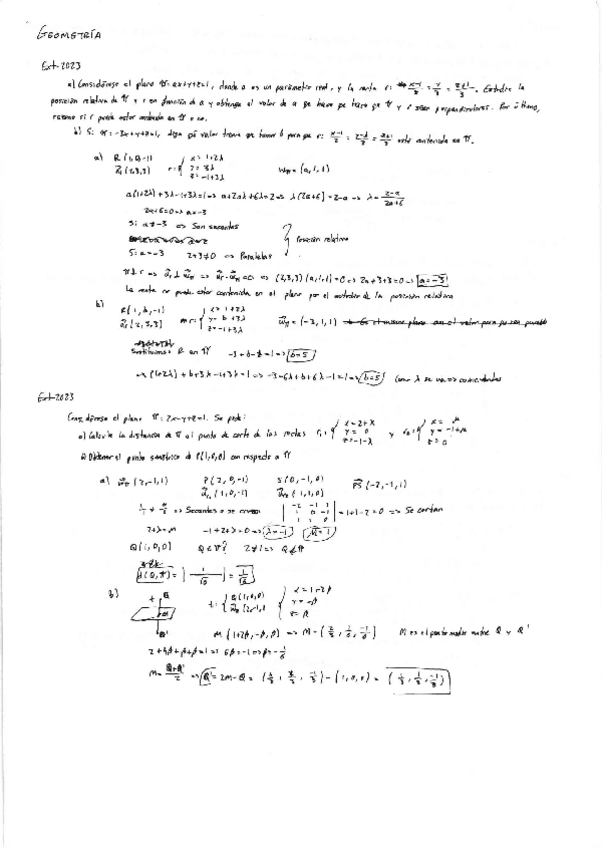 GEOMETRÍA
Ext-2023
a) Considérese el plano π: ax+y+z=1, donde a es un parámetro real, y la recta r: x-1/2 = y/3 = z+1/3. Estudie la
posición relativa de π y r en función de a y obtenga el valor de a que hace que π y r sean perpendiculares. Por último,
razone si r puede estar contenida en π o no.
b) Si π = -3x+y+z=1, diga qué valor tiene que tomar b para que r: x-1/2 = y-b/3 = z+1/3 esté contenida en π.
a) R(1,0,-1) r= { x=1+2λ
(2,3,3) y=3λ = (a,1,1)
z=-1+3λ
a(1+2λ)+3λ-1+3λ=1 => a+2aλ+6λ=2 => λ(2a+6)=2-a => λ= 2-a/2a+6
2a+6=0 => a=-3
Si a≠-3 => Son secantes
Posición relativa
Si a=-3 2+3≠0 => Paralelas
=> (2,3,3)(a,1,1)=0 => 2a+3+3=0 => a=-3
La recta no puede estar contenida en el plano por el estudio de la posición relativa
b) R(1,b,-1) r= { x=1+2λ
(2,3,3) y=b+3λ = (-3,1,1)
z=-1+3λ
Sustituimos R en π -3+b-1=1 => b=5
-3(1+2λ)+b+3λ-1+3λ=1 => -3-6λ+b+6λ-1=1 => b=5
Ext-2023
Considérese el plano π: 2x-y+z=1. Se pide:
a) Calcule la distancia de π al punto de corte de las rectas r₁= { x=2+λ y=0 z=-1-λ y r₂= { x=μ y=-1+μ z=0
b) Obtener el punto simétrico de P(1,0,0) con respecto a π
a) (2,-1,1) P(2,0,-1) S(0,-1,0) PS(-2,-1,1)
(1,0,-1) (1,1,0)
=> Secantes o se cruzan | -2 -1 1 | 1 0 -1 | 1 1 0 | = 1+1-2=0 => Se cortan
2+λ=μ -1+2+λ=0 => λ=-1 μ=1
Q(1,0,0) Q∈π? 2≠1 => Q∉π
d(Q,π)= | 1/√6 | = 1/√6
b) t: { Q(1,0,0) (2,-1,1) { x=1+2β
y=-β
z=β
M(1+2β,-β,β) => M=(2/3, 1/6, -1/6) M es el punto medio entre Q y Q'
2+4β+β+β=1 => 6β=-1 => β=-1/6
M= Q+Q'/2 => Q'=2M-Q = (4/3, 1/3, -1/3)-(1,0,0) = (1/3, 1/3, -1/3)